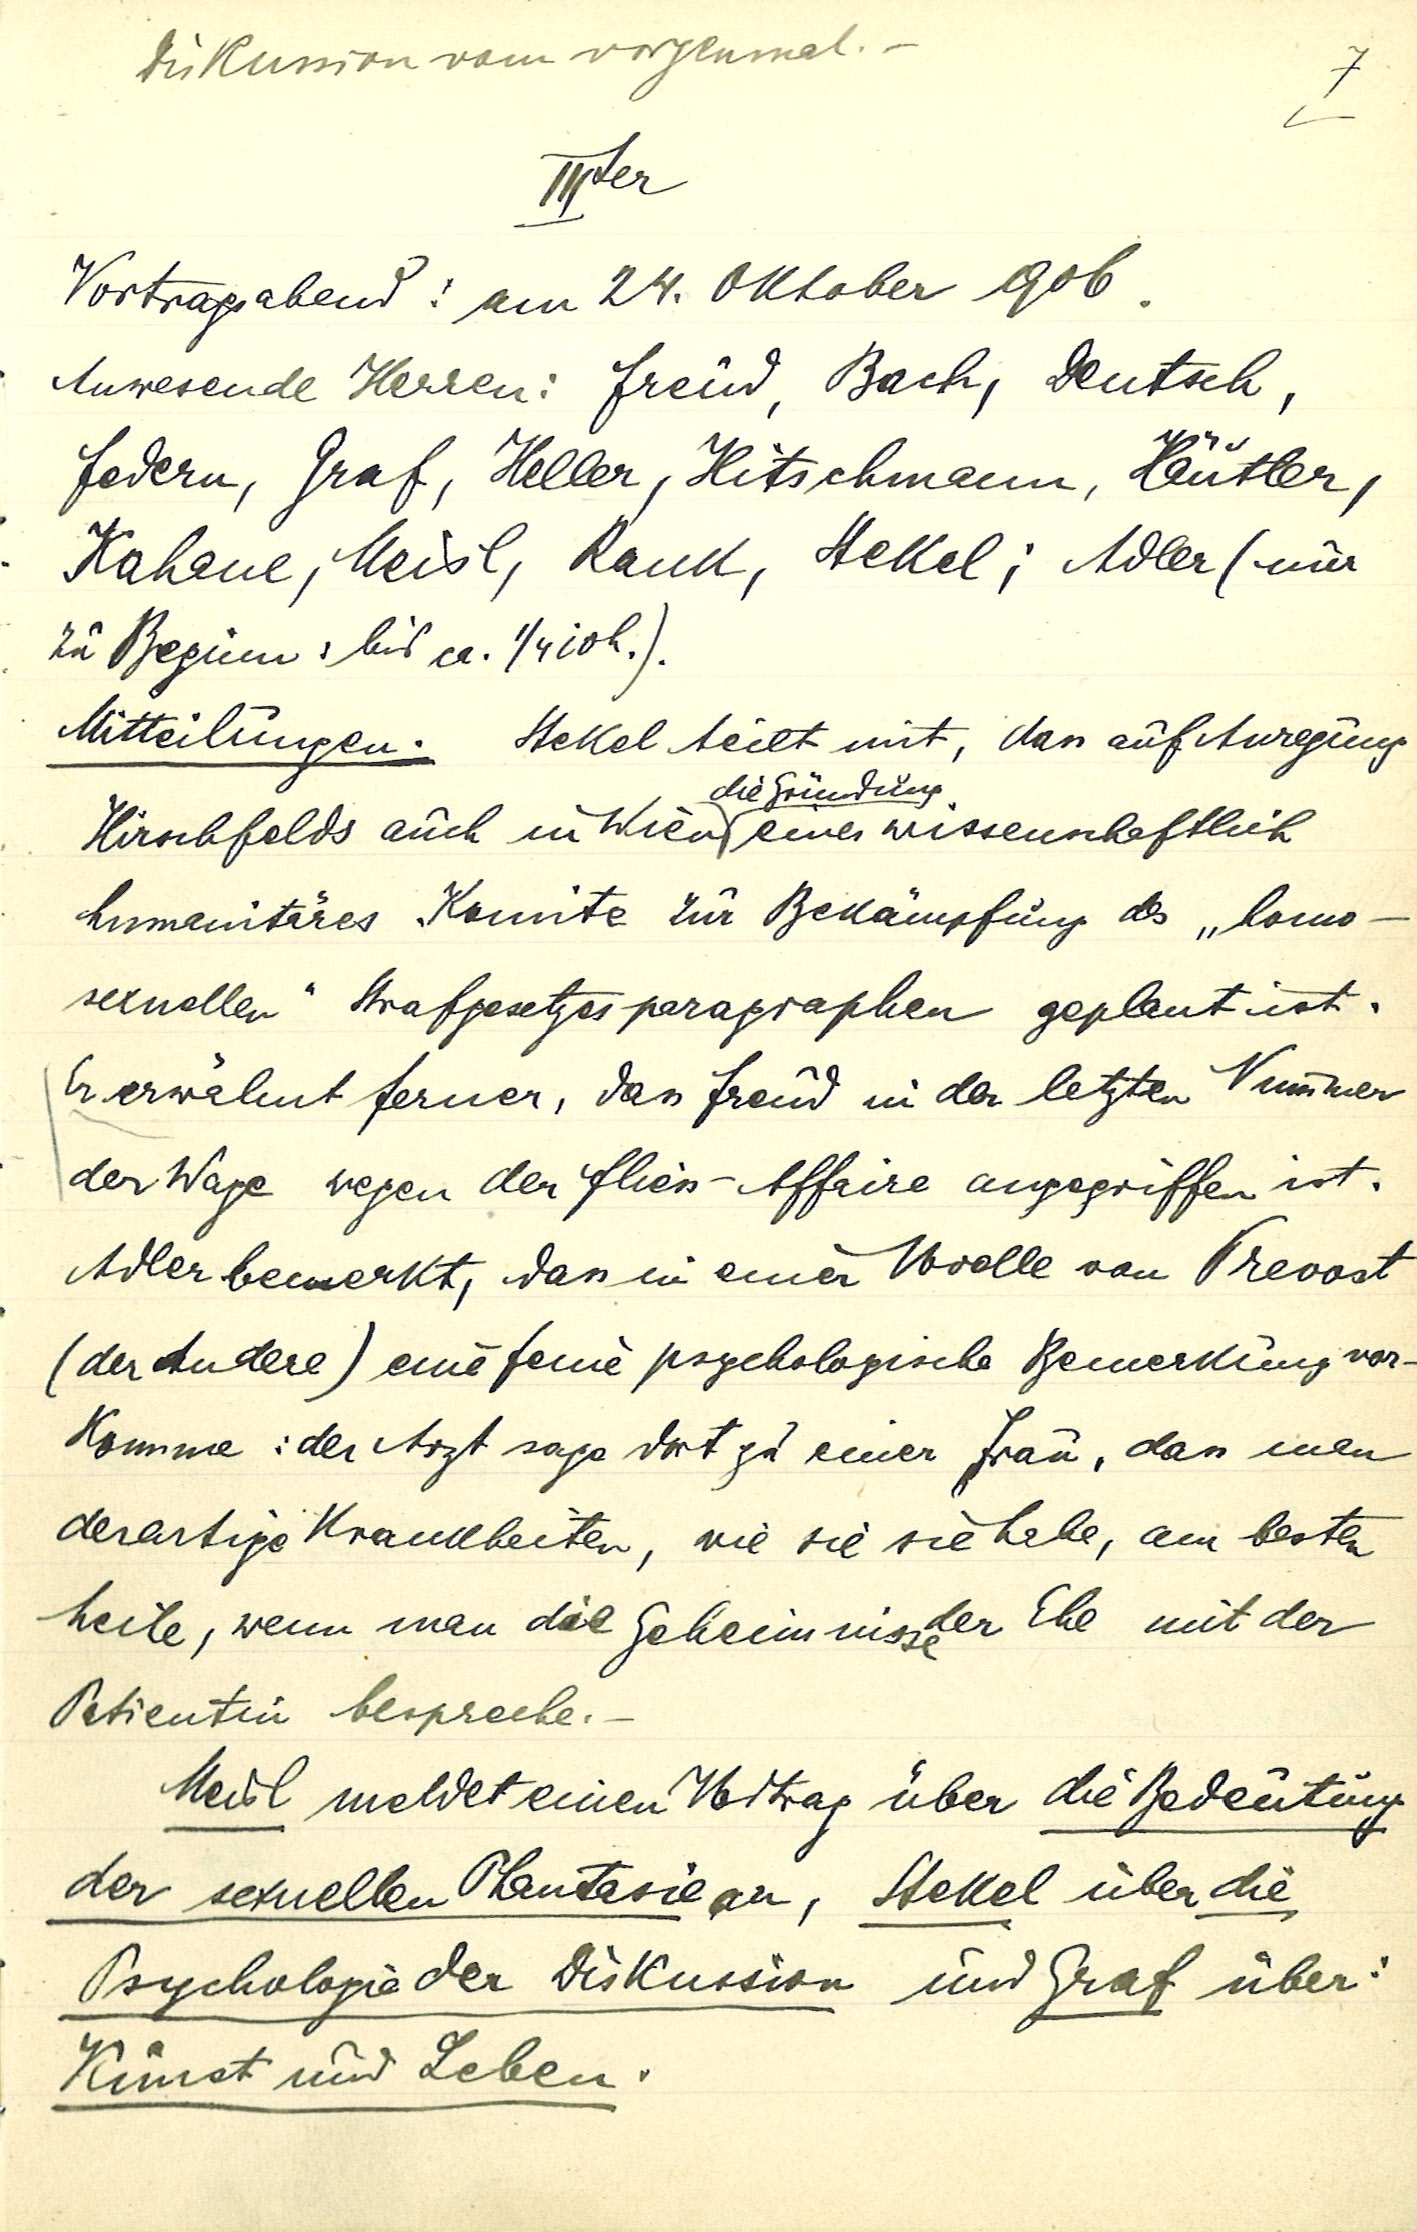 Diskussion vom vorgenmal. –
7
IIIter
Vortragsabend: am 24. Oktober 906.
Anwesende Herren: Freud, Bach, Deutsch,
Federn, Graf, Heller, Hitschmann, Häutler,
Kahane, Meisl, Rank, Stekel; Adler (nur
zu Beginn: bis ca. 1/4 10h.).
Mitteilungen. Stekel teilt mit, dass auf Anregung
die Gründung
Hirschfelds auch in Wien eines wissenschaftlich
humanitäres Komite zur Bekämpfung des „homo-
sexuellen“ Strafgesetzesparagraphen geplant ist.
Er erwähnt ferner, dass Freud in der letzten Nummer
der Wage wegen der Fliess-Affaire angegriffen ist.
Adler bemerkt, dass in einer Novelle von Prevost
(der Andere) eine feine psychologische Bemerkung vor-
komme: der Arzt sage dort zu einer Frau, dass man
derartige Krankheiten, wie sie sie habe, am besten
heile, wenn man die Geheimnisse der Ehe mit der
Patientin bespreche. –
Meisl meldet einen Vortrag über die Bedeutung
der sexuellen Phantasie an, Stekel über die
Psychologie der Diskussion und Graf über:
Kunst und Leben.